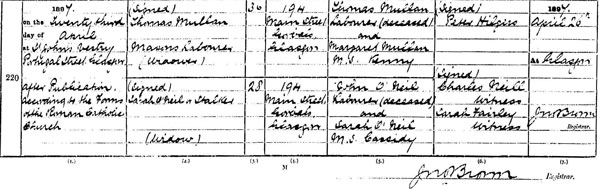 1887. (Signed) 36 194 Thomas Mullan (Signed) 1887.
on the Twenty third Thomas Mullan Main Street Labourer (deceased) Peter Hilgers April 26th
day of April Gorbals and
at St John's Vestry Masons Labourer Glasgow Margaret Mullan At Glasgow
Portugal Street Glasgow (Widower) M.S. Kenny
220
(Signed)
after Publication (Signed) 28 194 John O'Neil Charles Neill
according to the Forms Sarah O'Neil or Stalker Main Street Labourer (deceased) Witness Jno Brown
of the Roman Catholic Gorbals and Sarah Fairley Registrar.
Church Glasgow Sarah O'Neil Witness
(Widow) M.S. Cassidy
(1.) (2.) (3.) (4.) (5.) (6.) (7.)
Jno Brown Registrar.